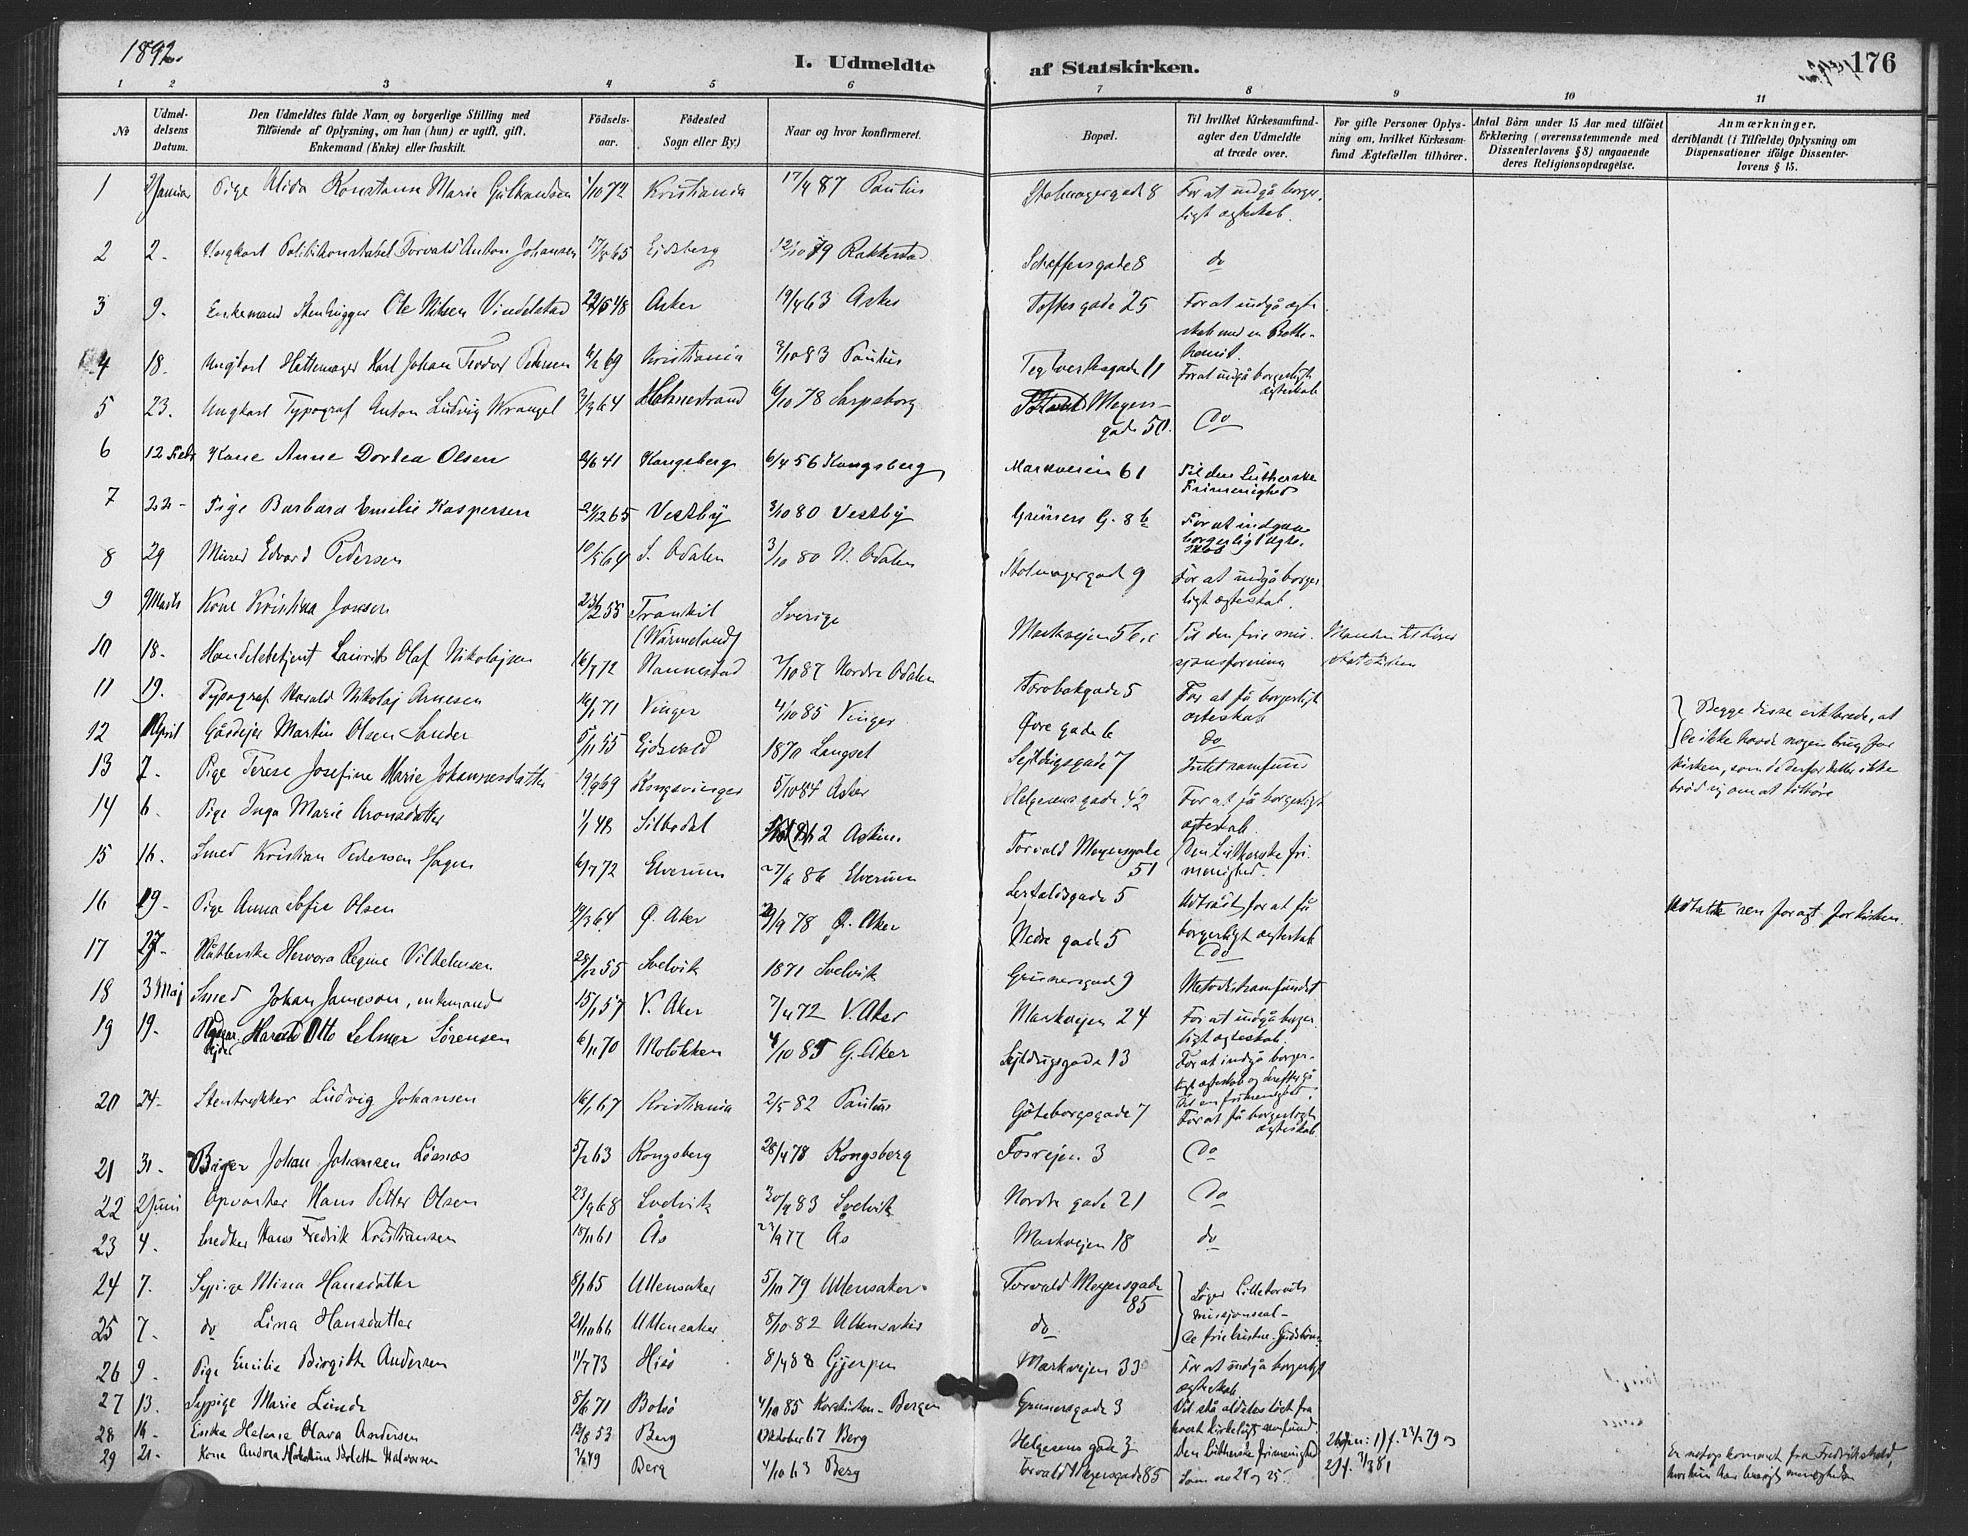 1892.
I. Udmeldte af Statskirken.
176
1 2 3 4 5 6 7 8 9 10 11
No
Udmeldelsens Datum.
Den Udmeldtes fulde Navn og borgerlige Stilling med Tilføiende af Oplysning, om han (hun) er ugift, gift, Enkemand (Enke) eller fraskilt.
Fødselsaar.
Fødested Sogn eller By.)
Naar og hvor konfirmeret.
Bopæl.
Til hvilket Kirkesamfund agter den Udmeldte at træde over.
For gifte Personer Oplysning om, hvilket Kirkesamfund Ægtefællen tilhører.
Antal Børn under 15 Aar med tilføiet Erklæring (overensstemmende med Dissenterlovens § 8) angaaende deres Religionsopdragelse.
Anmærkninger. deriblandt (i Tilfælde) Oplysning om Dispensationer ifølge Dissenterlovens § 15.
1 2 Januar Pige Alida Konstanse Marie Gulbrandsen 1/10 72 Kristiania 17/4 87 Paulus Skolmagergade 8 For at indgå borgerligt ægteskab.
2 2. Ungkarl Politikonstabel Torvald Anton Johansen 17/8 65 Eidsberg 12/10 79 Rakkestad Scheffersgade 8 do
3 9. Enkemand Stenhugger Ole Nilsen 48 Asker 19/4 63 Asker Toftes gade 25 For at indgå ægteskab med en
4 18. Ungkarl Hattemager Karl Johan Teodor Petersen 69 Kristiania 7/10 83 Paulus Teglverksgade 11 For at indgå borgerligt ægteskab
5 23. Ungkarl Typograf Anton Ludvig Wrangel 3/9 64 Holmestrand 6/10 78 Sarpsborg Meyersgade 50. Do
6 12 Febr Kone Anne Dortea Olsen 2/6 41 Kongsberg 6/4 56 Kongsberg Markveien 61 Til den Lutherske Frimenighed
7 22 - Pige Barbara Emilie Kaspersen 65 Vestby 3/10 80 Vestby Grüners G. 8 b For at indgaa borgerligt ægteskab
8 29 Edvard Pedersen 10/5 64 S. Odalen 3/10 80 N. Odalen Skolmagergade 9 For at indgå borgerligt ægteskab.
9 9 Marts Kone Kristina Jonsen 23/2 55 Trankil (Wärmeland) Sverige Markvejen 56 Til den frie missjonsforening Manden tilhører statskirken
10 18. Handelsbetjent Laurits Olaf Nikolajsen 16/7 72 Nannestad 2/10 87 Nordre Odalen Torobakgade 5 For at få borgerligt ægteskab
11 19. Typograf Harald Nikolaj Arnesen 16/1 71 Vinger 4/10 85 Vinger Øvre gade 6 do
12 April Gårdejer Martin Olsen Sander 55 Eidsvold 1870 Langset Sejldugsgade 7 Intet samfund Begge disse erklærede, at de ikke havde nogen brug for kirken, som de derfor heller ikke brød sig om at tilhøre
13 7. Pige Terese Josefine Marie Johannesdatter 19/9 69 Kongsvinger 5/10 84 Asker Helgesens gade 42 For at få borgerligt ægteskab.
14 6. Pige Inga Marie Aronsdatter 1/1 48 Silbodal 62 Askim Torvald Meyersgade 51 Den Lutherske frimenighed.
15 16. Smed Kristian Pedersen Hagen 6/7 72 Elverum 27/6 86 Elverum 5 Udtrådt for at få borgerligt ægteskab
16 19. Pige Anna Sofie Olsen 64 Ø. Aker 29/9 78 Ø. Aker Nedre gade 5 Do Udtalte ren foragt for kirken.
17 27. Hervora Regine Vilhelmsen 28/12 55 Svelvik 1871 Svelvik Grunersgade 9 Metodistsamfundet
18 3 Maj Smed Johan Jameson, enkemand 15/1 57 V. Aker 7/4 72 V. Aker Markvejen 24 For at indgå borgerligt ægteskab.
19 19. Harald Otto Selmer Sørensen 6/11 70 Moløkken 4/10 85 G. Aker Sejldugsgade 13 For at indgå borgerligt ægteskab og derefter gå til en frimenighed.
20 24. Stentrykker Ludvig Johansen 16/1 67 Kristiania 2/5 82 Paulus Göteborgsgade 7 For at få borgerligt ægteskab
21 31. Johan Johansen Løsnæs 5/2 63 Kongsberg 28/4 78 Kongsberg Fosvejen 3 Do
22 2 Juni Opvarter Hans Petter Olsen 23/9 68 Svelvik 30/9 83 Svelvik Nordre gade 21 Do
23 4. Snedker Hans Fredrik Kristiansen 18/11 61 Ås 23/9 77 Ås Markvejen 18 do
24 7. Sypige Mina Hansdatter 8/1 65 Ullensaker 5/10 79 Ullensaker Torvald Meyersgade 85 Søger Lilletorvets missjonssal - de frie kristne.
25 7. do Lina Hansdatter 21/10 66 Ullensaker 8/10 82 Ullensaker do
26 9. Pige Emilie Birgitte Andersen 11/7 73 Hisø 8/4 88 Gjerpen Markvejen 33 For at indgå borgerligt ægteskab
27 13. Sypige Marie Lunde 8/6 71 Bolsø 4/10 85 Korskirken - Bergen Grunersgade 3 Vil stå aldeles løst fra hvert kirkeligt samfund.
28 16. Enke Helene Olava Andersen 12/8 53 Berg Oktober 67 Berg Helgesens gade 3 Den Lutherske frimenighed 2 børn: 1) f. 23/2 79 og 2) f. 3/3 81
29 21. Kone Andrea Bolette Halvorsen 49 Berg 4/10 63 Berg Torvald Meyersgade 85 Som no 24 og 25. Er netop kommet fra Fredrikshald, hvor hun har besøgt menigheden